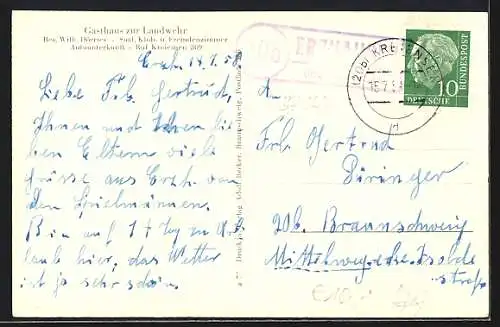 Gasthaus zur Landwehr
Bes. Wilh. Dörries - Saal, Klub- u. Fremdenzimmer
Ruf Kreiensen 209
Erzh. 14.7.5
Liebe Frl. Gertrud,
Ihnen und Ihren lie-
ben Eltern viele
Grüsse aus Erzh. von
den Spielmännern.
Bin auf 14 Tg in Ur-
laub hier, das Wetter
ist ja sehr schön.
Druck Verlag Adolf Becker, Braunschweig
ERZHAU
(20b) KREIENSEN
15.7.5
d
10
DEUTSCHE
BUNDESPOST
An
Frl. Gertrud
Piringer
20b. Braunschweig
Mittelweg, Ecke Isolde
straße